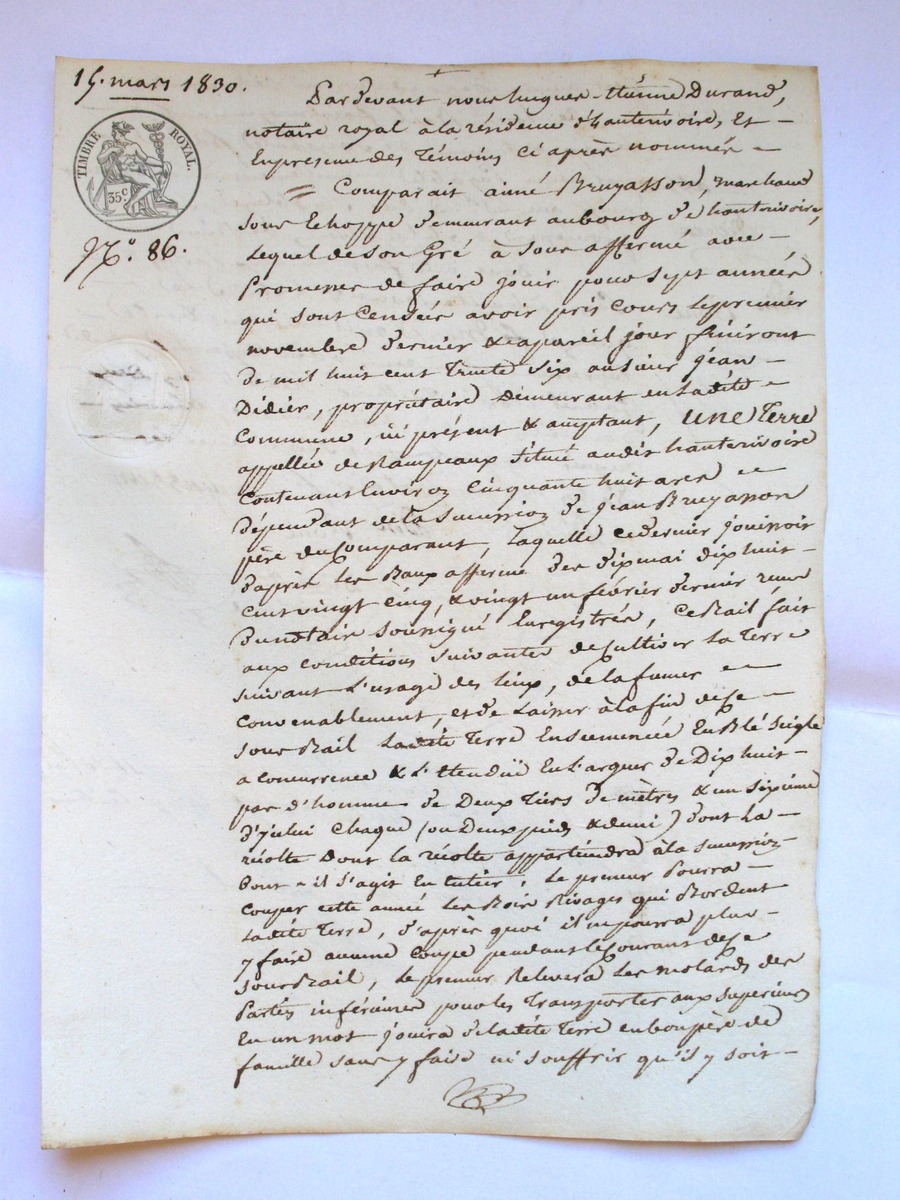 15. mars 1830.
TIMBRE ROYAL.
35 C
N.º 86.
Pardevant nous hugues-Etienne Durand,
notaire royal à la résidence d'hauterivoire, Et
En presence des Témoins ci après nommés
= Comparait aimé Bruyasson, marchand
sous Echoppe demeurant au bourg de hauterivoire,
Lequel de son Gré à sous affermé avec
Promesse de faire jouir pour sept années
qui sont Censées avoir pris cours le premier
novembre dernier & à pareil jour finiront
de mil huit cent Trente six au sieur Jean
Didier, propriétaire demeurant en Ladite
Commune, ici présent & acceptant, une Terre
appellée de Rampeaux située audit hauterivoire
Contenant Environ Cinquante huit ares
Dépendant de la succession de jean Bruyasson
père du Comparant, laquelle ce dernier jouissoit
d'après les Baux afferme des dix mai dix huit
cent vingt cinq, & vingt un février dernier reçus
du notaire soussigné Enregistrés, Ce Bail fait
aux conditions suivantes de Cultiver La Terre
suivant L'usage des lieux, de la fumer
convenablement, et de Laisser à la fin de ce
sous Bail Ladite Terre Ensemencée En Blé Seigle
a concurrence & L'Etendüe En Largeur de Dix huit
pas d'homme de Deux Tiers de mètres & un sixième
d'icelui Chaque (ou Deux pieds & demi) dont La
récolte Dont la récolte appartiendra à la succession
Dont il s'agit En entier; Le preneur Pourra
Couper cette année Les Bois Rivages qui Bordent
Ladite Terre, d'après quoi il n'y pourra plus
y faire aucune Coupe pendant le Courant de ce
sous Bail, Le preneur Relevera Les molards des
Parties inférieures pour les Transporter aux superieures
En un mot jouira de ladite Terre en bon père de
famille sans y faire ni souffrir qu'il y soit